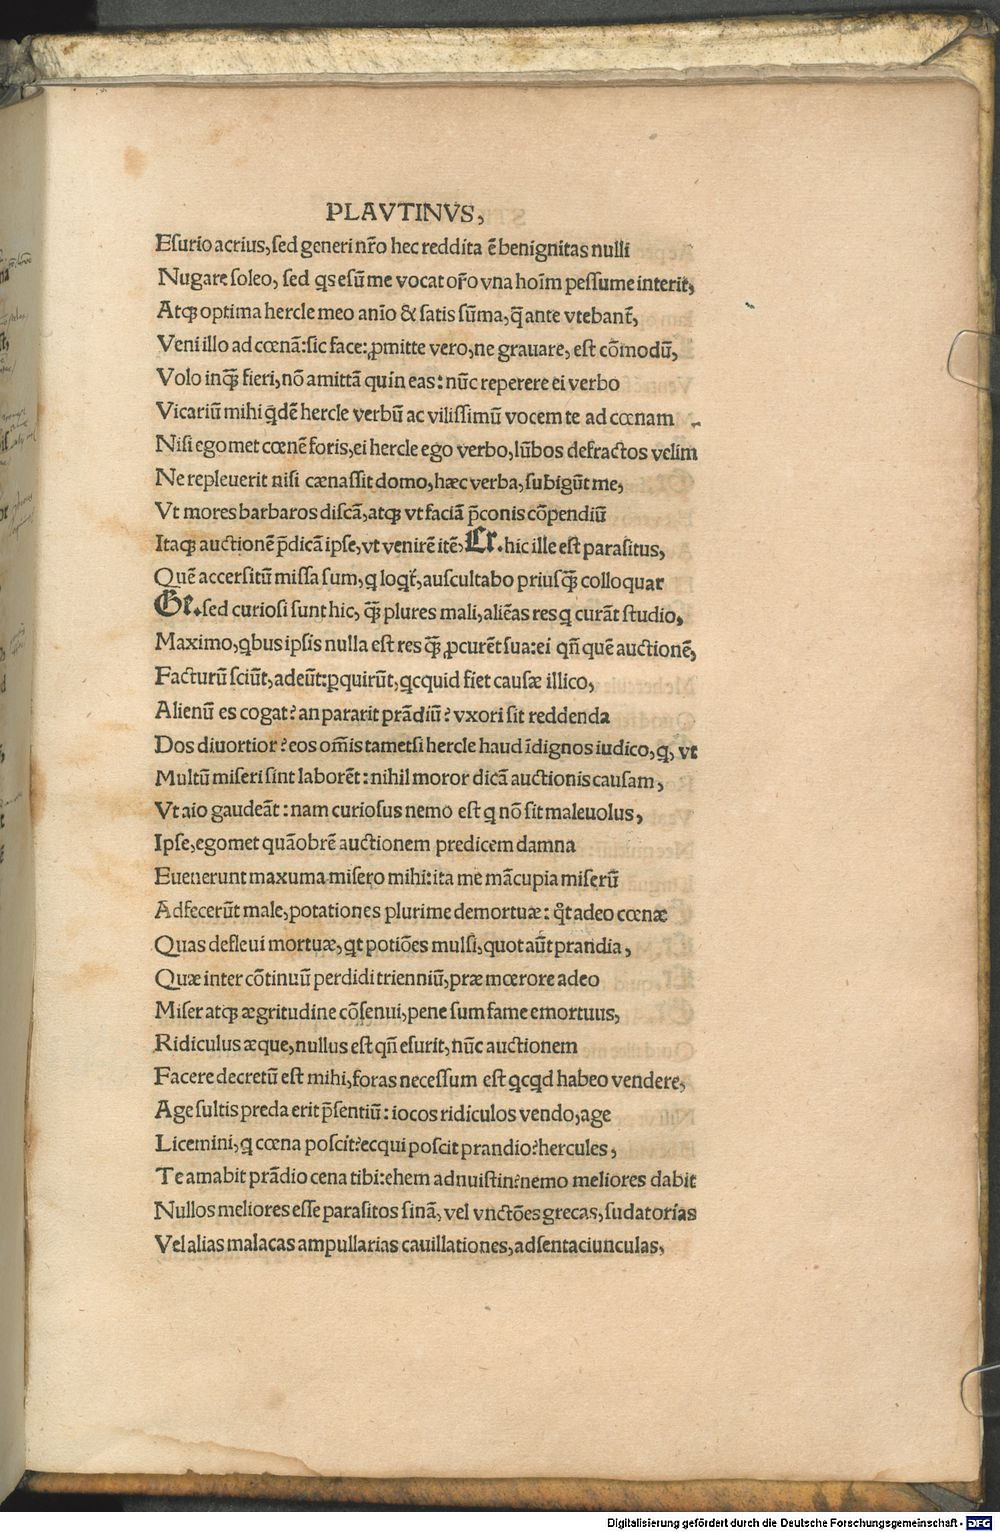 PLAVTINVS,
Esurio acrius, sed generi nr̃o hec reddita ẽ benignitas nulli
Nugare soleo, sed qs esũ me vocat or̃o vna hoĩm pessume interit,
Atqꝫ optima hercle meo anĩo & satis sũma, q̃ ante vtebant̃,
Veni illo ad cœnã: sic face: ꝓmitte vero, ne grauare, est cõmodũ,
Volo inqꝫ̃ fieri, nõ amittã quin eas: nũc reperere ei verbo
Vicariũ mihi qdẽ hercle verbũ ac vilissimũ vocem te ad cœnam
Nisi egomet cœnẽ foris, ei hercle ego verbo, lũbos defractos velim
Ne repleuerit nisi cænassit domo, hæc verba, subigũt me,
Vt mores barbaros discã, atqꝫ vt faciã p̃conis cõpendiũ
Itaqꝫ auctionẽ p̃dicã ipse, vt venirẽ itẽ, Cr. hic ille est parasitus,
Quẽ accersitũ missa sum, q loqt̃, auscultabo priusqꝫ̃ colloquar
Ge. sed curiosi sunt hic, qꝫ̃ plures mali, aliẽas res q curãt studio,
Maximo, qbus ipsis nulla est res qꝫ̃ ꝓcurẽt sua: ei qñ quẽ auctionẽ,
Facturũ sciũt, adeũt: ꝑquirũt, qcquid fiet causæ illico,
Alienũ es cogat? an pararit prãdiũ? vxori sit reddenda
Dos diuortior? eos om̃is tametsi hercle haud ĩdignos iudico, q, vt
Multũ miseri sint laborẽt: nihil moror dicã auctionis causam,
Vt aio gaudeãt: nam curiosus nemo est q nõ sit maleuolus,
Ipse, egomet quãobrẽ auctionem predicem damna
Euenerunt maxuma misero mihi: ita me mãcupia miserũ
Adfecerũt male, potationes plurime demortuæ: q̃t adeo cœnæ
Quas defleui mortuæ, qt potiões mulsi, quot aũt prandia,
Quæ inter cõtinuũ perdidi trienniũ, præ mœrore adeo
Miser atqꝫ ægritudine cõsenui, pene sum fame emortuus,
Ridiculus æque, nullus est qñ esurit, nũc auctionem
Facere decretũ est mihi, foras necessum est qcqd habeo vendere,
Age sultis preda erit p̃sentiũ: iocos ridiculos vendo, age
Licemini, q cœna poscit? ecqui poscit prandio? hercules,
Te amabit prãdio cena tibi: ehem adnuistin? nemo meliores dabit
Nullos meliores esse parasitos sinã, vel vnctões grecas, sudatorias
Vel alias malacas ampullarias cauillationes, adsentaciunculas,
Digitalisierung gefördert durch die Deutsche Forschungsgemeinschaft - DFG